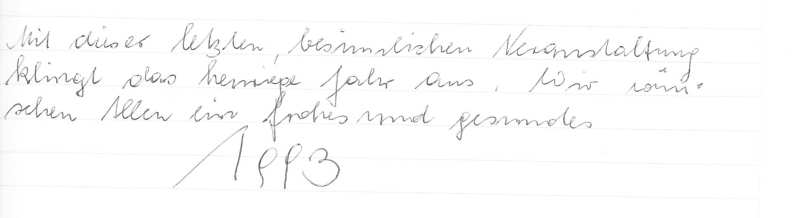 Mit dieser letzten, besinnlichen Veranstaltung
klingt das heurige Jahr aus. Wir wün-
schen Allen ein frohes und gesundes
1993